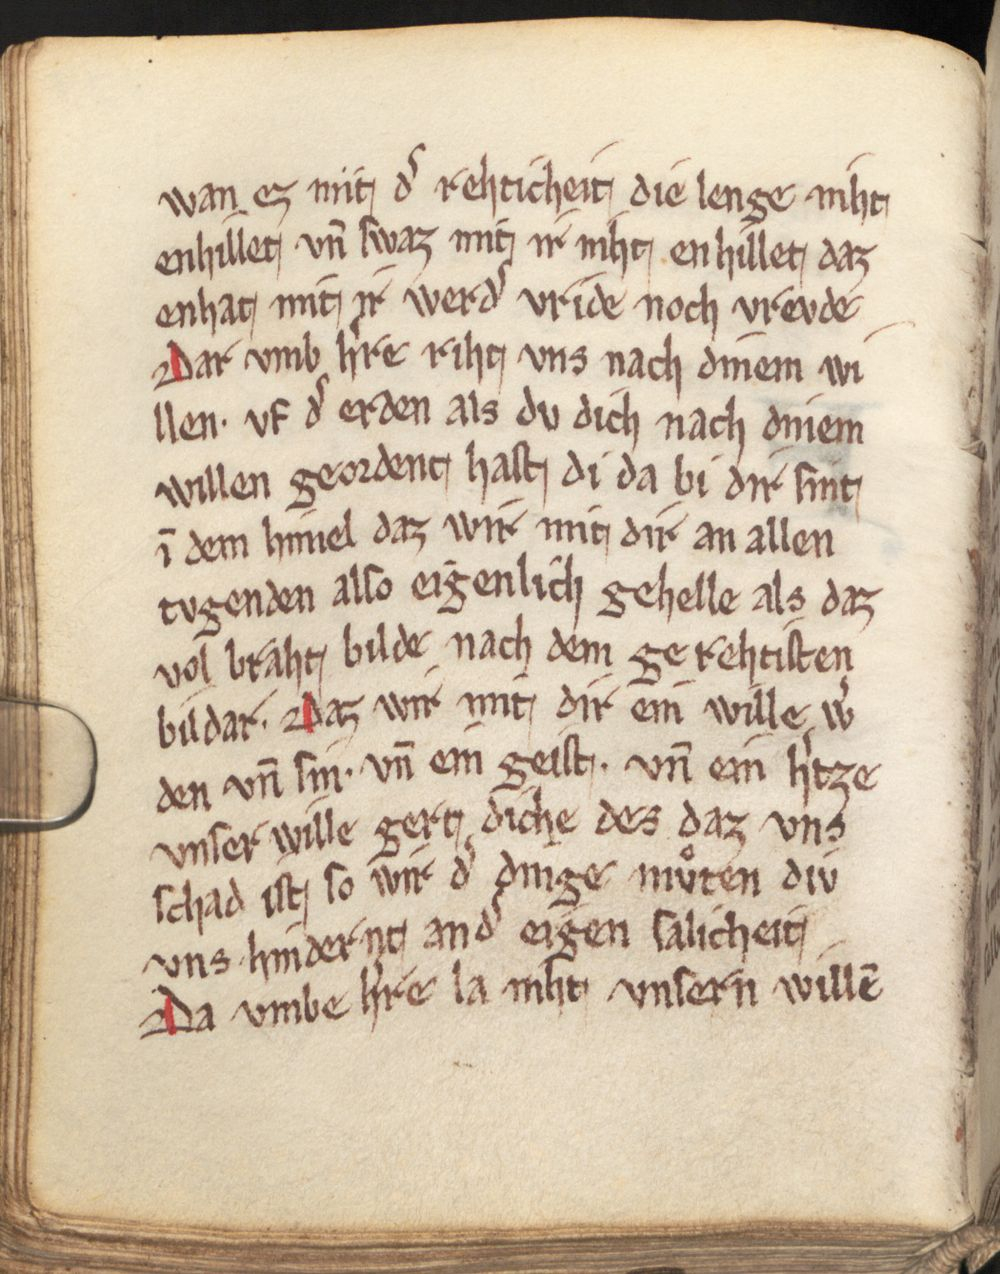 wan ez mit d͛ rehticheit die lenge niht
enhillet vn̄ swaz mit ir niht enhillet daz
enhat mit ir werd͛ vride noch vrevde
Dar vmb h͛re riht vns nach dinem wi
llen· vf d͛ erden als dv dich nach dinem
willen geordent hast di da bi dir sint
ī dem himel daz wir mit dir an allen
tvgenden also eigenlich gehelle als daz
vol braht bilde nach dem gerehtisten
bildar· Daz wir mit dir ein wille w͛
den vn̄ sin· vn̄ ein geist· vn̄ ein h͛tze
vnser wille gert diche des daz vns
schad ist so wir d͛ dinge mvͦten div
vns hindernt and͛ eigen salicheit
Da vmbe h͛re la niht vnsern willē